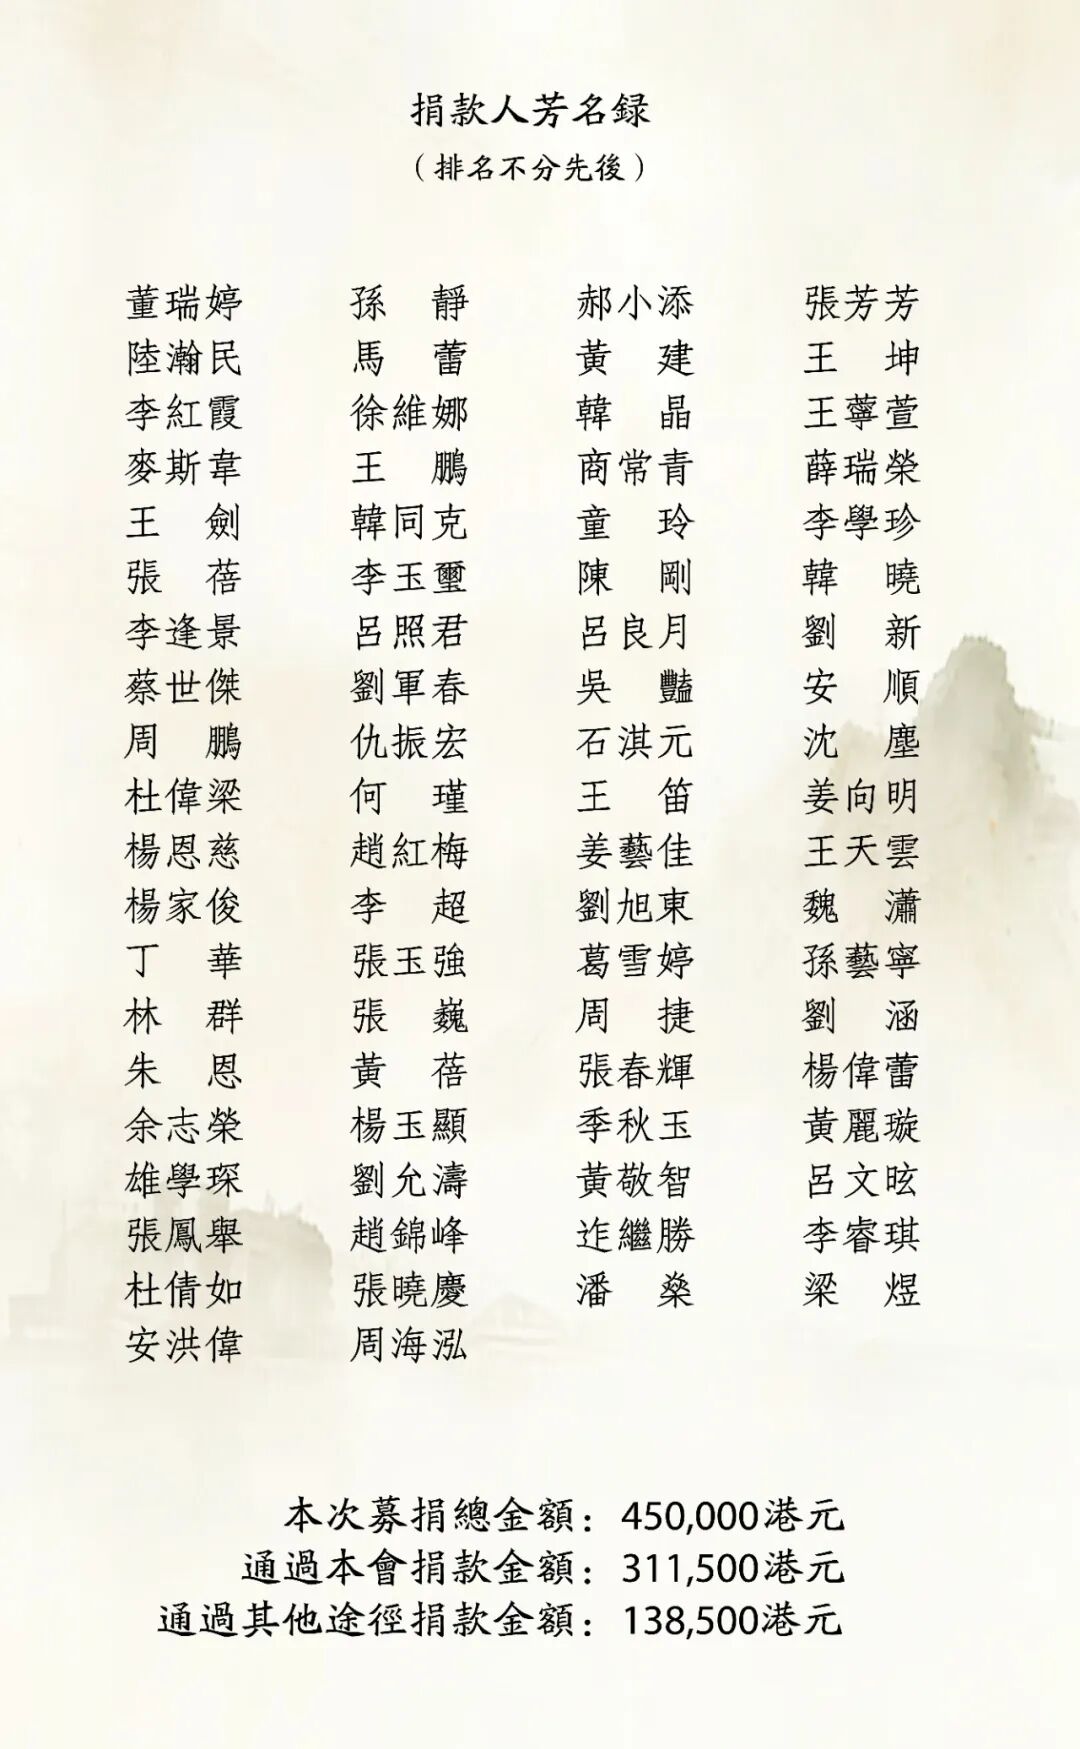 捐款人芳名録
（排名不分先後）
董瑞婷 孫 靜 郝小添 張芳芳
陸瀚民 馬 蕾 黃 建 王 坤
李紅霞 徐維娜 韓 晶 王薴萱
麥斯韋 王 鵬 商常青 薛瑞榮
王 劍 韓同克 童 玲 李學珍
張 蓓 李玉璽 陳 剛 韓 曉
李逢景 呂照君 呂良月 劉 新
蔡世傑 劉軍春 吳 豔 安 順
周 鵬 仇振宏 石淇元 沈 塵
杜偉梁 何 瑾 王 笛 姜向明
楊恩慈 趙紅梅 姜藝佳 王天雲
楊家俊 李 超 劉旭東 魏 瀟
丁 華 張玉強 葛雪婷 孫藝寧
林 群 張 巍 周 捷 劉 涵
朱 恩 黃 蓓 張春輝 楊偉蕾
余志榮 楊玉顯 季秋玉 黃麗璇
雄學琛 劉允濤 黃敬智 呂文昡
張鳳舉 趙錦峰 迮繼勝 李睿琪
杜倩如 張曉慶 潘 燊 梁 煜
安洪偉 周海泓
本次募捐總金額：450,000港元
通過本會捐款金額：311,500港元
通過其他途徑捐款金額：138,500港元